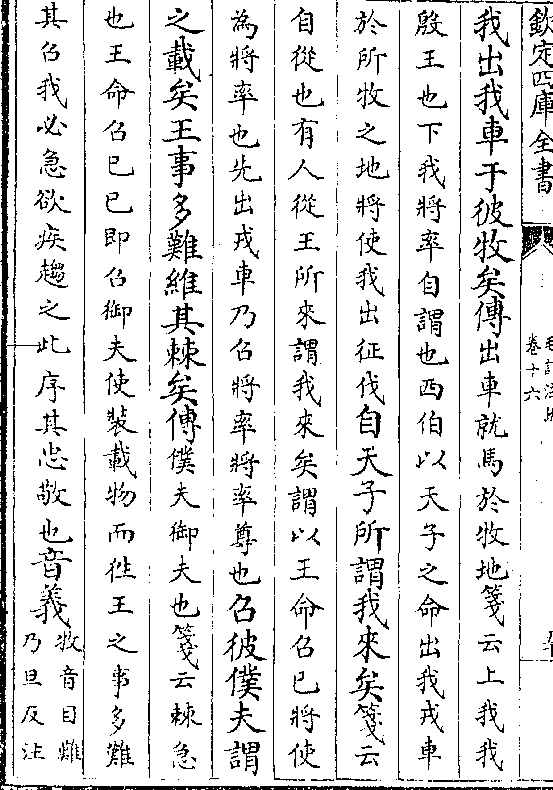 欽定四庫全書
卷十六
我出我車于彼牧矣傳出車就馬於牧地箋云上我我
殷王也下我將率自謂也西伯以天子之命出我戎車
於所牧之地將使我出征伐自天子所謂我來矣箋云
自從也有人從王所來謂我來矣謂以王命召已將使
為將率也先出戎車乃召將率將率尊也召彼僕夫謂
之載矣王事多難維其棘矣傳僕夫御夫也箋云棘急
也王命召已已即召御夫使裝載物而徃王之事多難
其召我必急欲疾趨之此序其忠敬也音義
牧音目難
乃旦反注